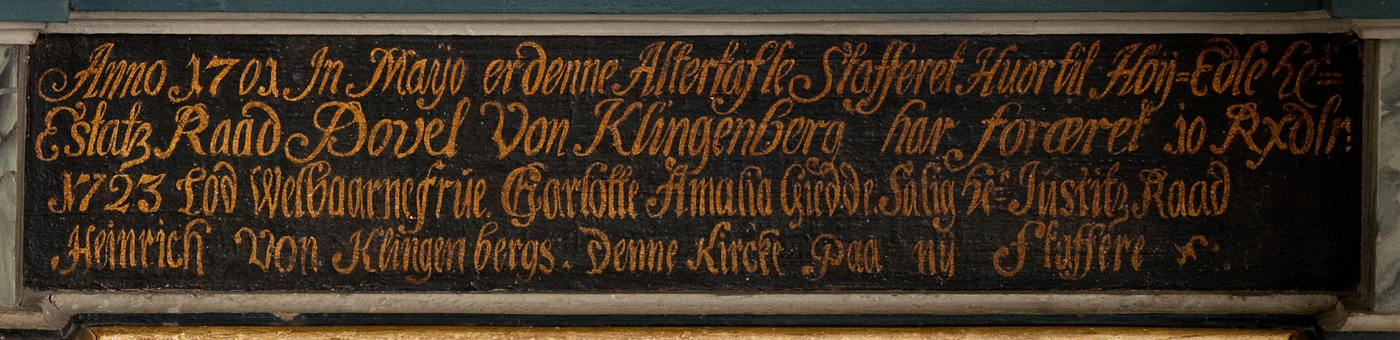 Anno 1701 In Maÿo er denne Altertafle Stafferet Huortil Höÿ=Edle he:
Estatz Raad Povel Von Klingenberg har foræret 10 Rxdlr:
1723 Lod Welbaarne früe. Charlotte Amalia Giedde Salig he: Justitz Raad
Heinrich Von Klingenbergs. Denne Kircke Paa nÿ Staffere